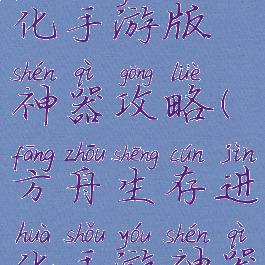 化手游版
shén qì gōng lüè
神器攻略(
fāng zhōu shēng cún jìn
方舟生存进
huà shǒu yóu shén qì
化手游神器